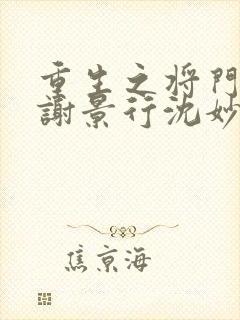 重生之将門
謝景行沈妙
焦京海